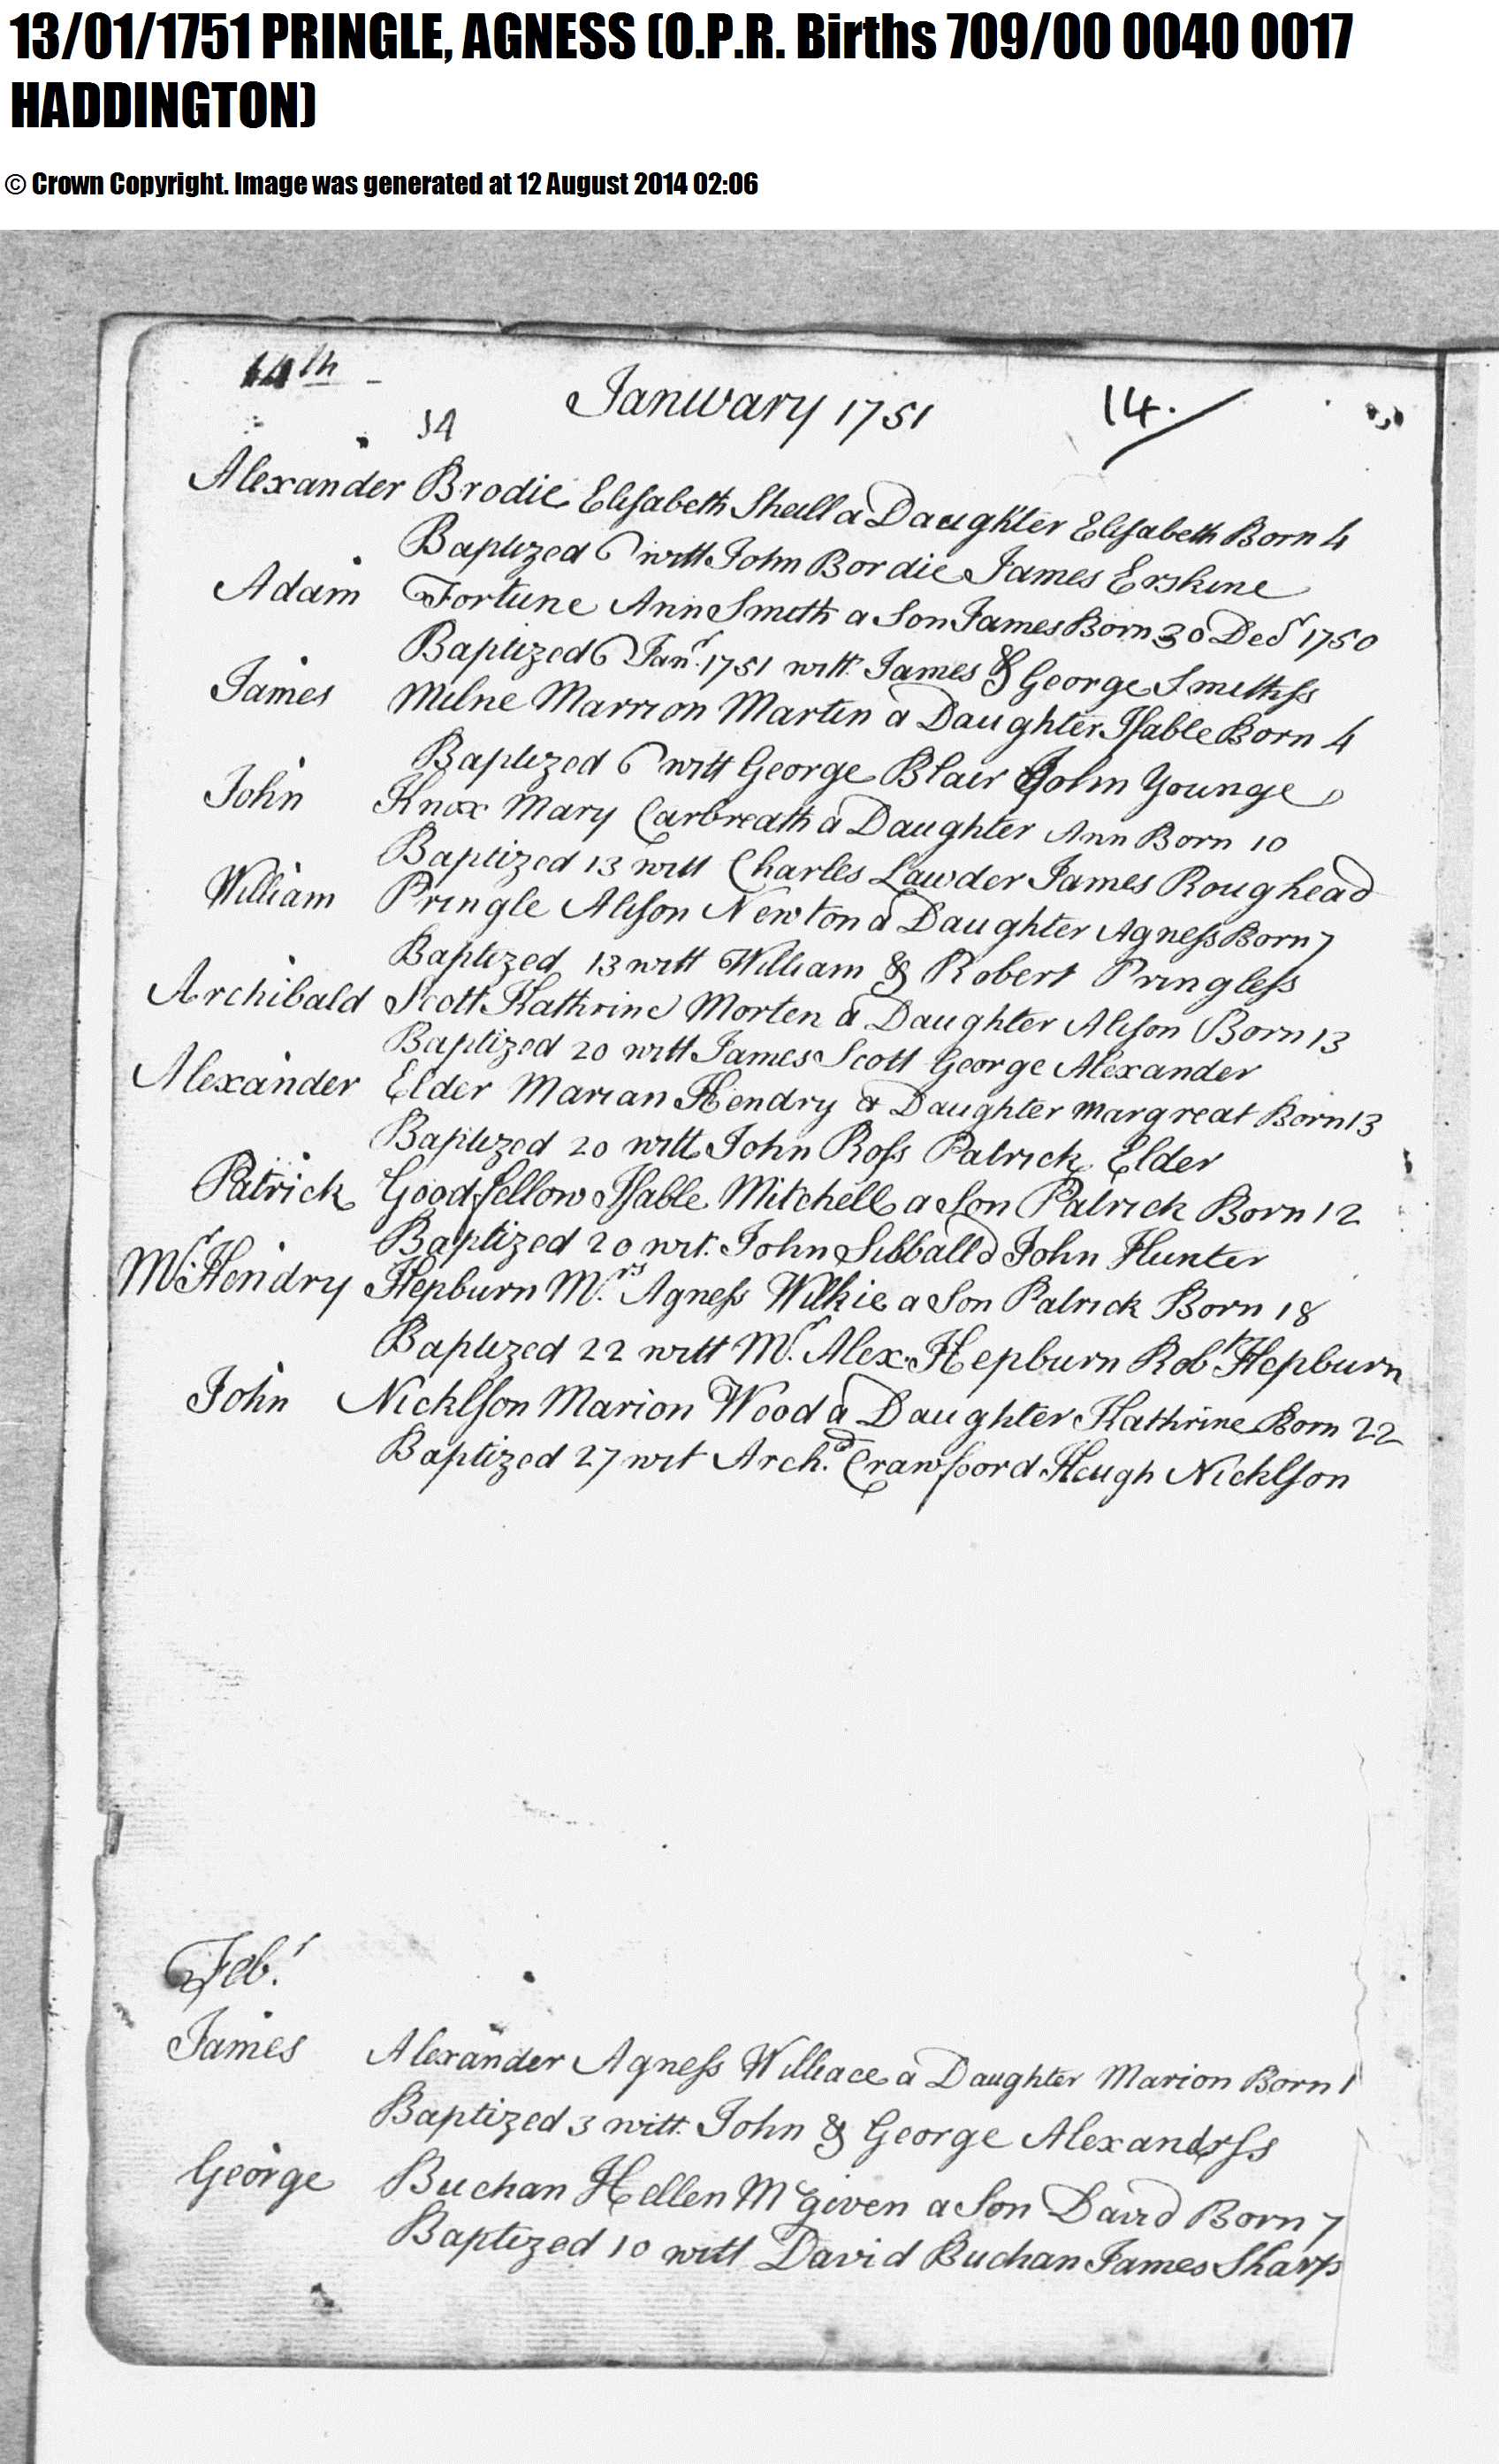 13/01/1751 PRINGLE, AGNESS (O.P.R. Births 709/00 0040 0017
HADDINGTON)
© Crown Copyright. Image was generated at 12 August 2014 02:06
14th
January 1751
14.
14
Alexander Brodie Elisabeth Sheill a Daughter Elisabeth Born 4
Baptized 6 witt John Bordie James Erskine
Adam Fortune Ann Smith a Son James Born 30 Decr 1750
Baptized 6 Janr. 1751 witt. James & George Smithss
James Milne Marrion Martin a Daughter Isable Born 4
Baptized 6 witt George Blair John Younge
John Knox Mary Carbreath a Daughter Ann Born 10
Baptized 13 witt Charles Lawder James Roughead
William Pringle Alison Newton a Daughter Agness Born 7
Baptized 13 witt William & Robert Pringless
Archibald Scott Kathrine Morten a Daughter Alison Born 13
Baptized 20 witt James Scott George Alexander
Alexander Elder Marian Hendry a Daughter Margreat Born 13
Baptized 20 witt John Ross Patrick Elder
Patrick Goodfellow Isable Mitchell a Son Patrick Born 12
Baptized 20 wit. John Sibballd John Hunter
Mr. Hendry Hepburn Mrs. Agness Wilkie a Son Patrick Born 18
Baptized 22 witt Mr. Alex. Hepburn Robt Hepburn
John Nicklson Marion Wood a Daughter Kathrine Born 22
Baptized 27 wit Archd. Crawfoord Heugh Nicklson
Febr.
James Alexander Agness Williace a Daughter Marion Born 1
Baptized 3 witt. John & George Alexandrss
George Buchan Hellen McGiven a Son David Born 7
Baptized 10 witt David Buchan James Sharp